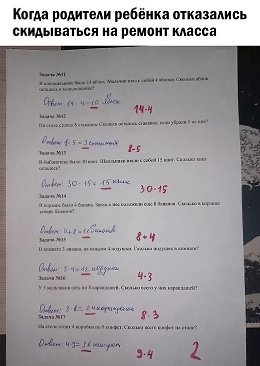 Когда родители ребёнка отказались
скидываться на ремонт класса
Задача №11
В холодильнике было 14 яблок. Мальчик взял с собой 4 яблока. Сколько яблок
осталось в холодильнике?
Ответ: 14-4=10 яблок
14-4
Задача №12
На столе стояло 8 стаканов. Сколько осталось стаканов, если убрали 5 из них?
Ответ: 8-5=3 стакана
8-5
Задача №13
В библиотеке было 30 книг. Школьники взяли с собой 15 книг. Сколько книг
осталось?
Ответ: 30-15=15 книг
30-15
Задача №14
В корзине было 4 банана. Затем в неё положили еще 8 бананов. Сколько в корзине
теперь бананов?
Ответ: 4+8=12 бананов
8+4
Задача №15
В комнате 3 дивана, на каждом 4 подушки. Сколько подушек в комнате?
Ответ: 3·4=12 подушек
4·3
Задача №16
У 3 мальчиков есть по 8 карандашей. Сколько всего у них карандашей?
Ответ: 3·8=24 карандаша
8·3
Задача №17
На столе стоит 4 коробки по 9 конфет. Сколько всего конфет на столе?
Ответ: 4·9=36 конфет
9·4
2